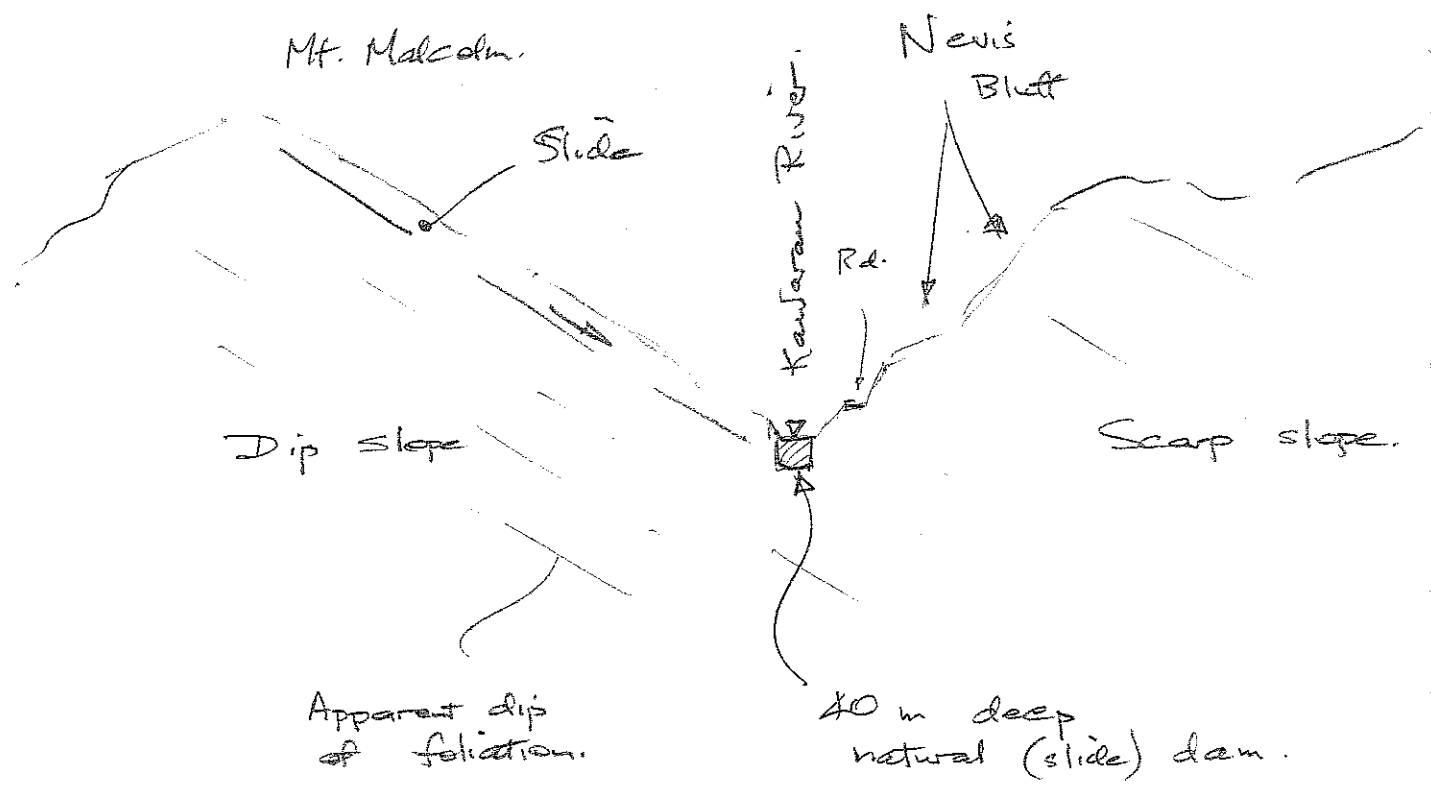 Mt. Malcolm.
Nevis
Bluff
Slide
Kawarau River.
Rd.
Dip slope
Scarp slope.
Apparent dip
of foliation.
40 m deep
natural (slide) dam.